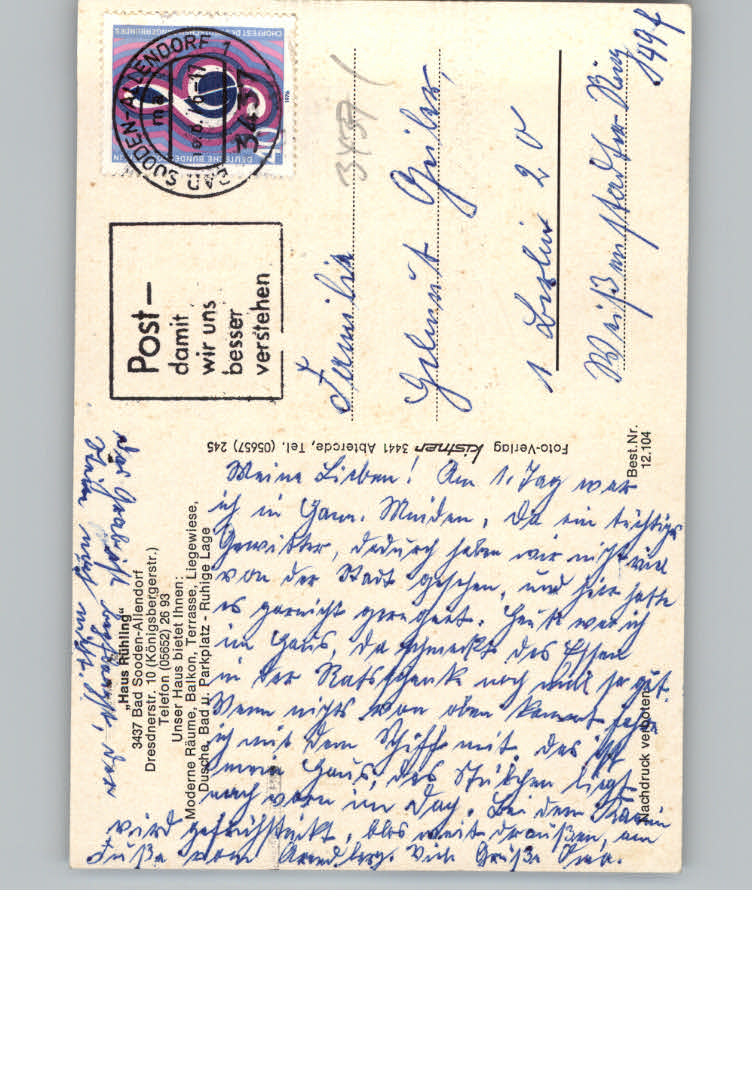 CHORFEST DES DEUTSCHEN SÄNGERBUNDES
1976
DEUTSCHE BUNDESPOST BERLIN
BAD SOODEN-ALLENDORF 1
ma
3437
Post –
damit
wir uns
besser
verstehen
3437
Familie
Helmut Geiler,
1 Berlin 20
Weißenstadter Ring
Foto-Verlag Kistner 3441 Abterode, Tel. (05657) 245
Best.Nr.
12.104
„Haus Rühling“
3437 Bad Sooden-Allendorf
Dresdnerstr. 10 (Königsbergerstr.)
Telefon (05652) 26 93
Unser Haus bietet Ihnen:
Moderne Räume, Balkon, Terrasse, Liegewiese,
Dusche, Bad u. Parkplatz - Ruhige Lage
Nachdruck verboten
Meine Lieben! Am 1. Tag war
ich in Hann. Münden, da ein tüchtiges
Gewitter, dadurch haben wir nicht viel
von der Stadt gesehen, und hier hatte
es garnicht geregnet. Heut war ich
im Haus, da schmeckt das Essen
in der Ratsschenke noch mal so gut.
Wenn nichts von oben kommt fahre
ich mit dem Schiff mit, das ist
mein Haus, das Stübchen liegt
nach vorn im Dach. Bei dem
wird gefrühstückt, blos weit draußen, am
Fuße vom Viele Grüße Oma.
Das Gebäck der
nicht mehr.